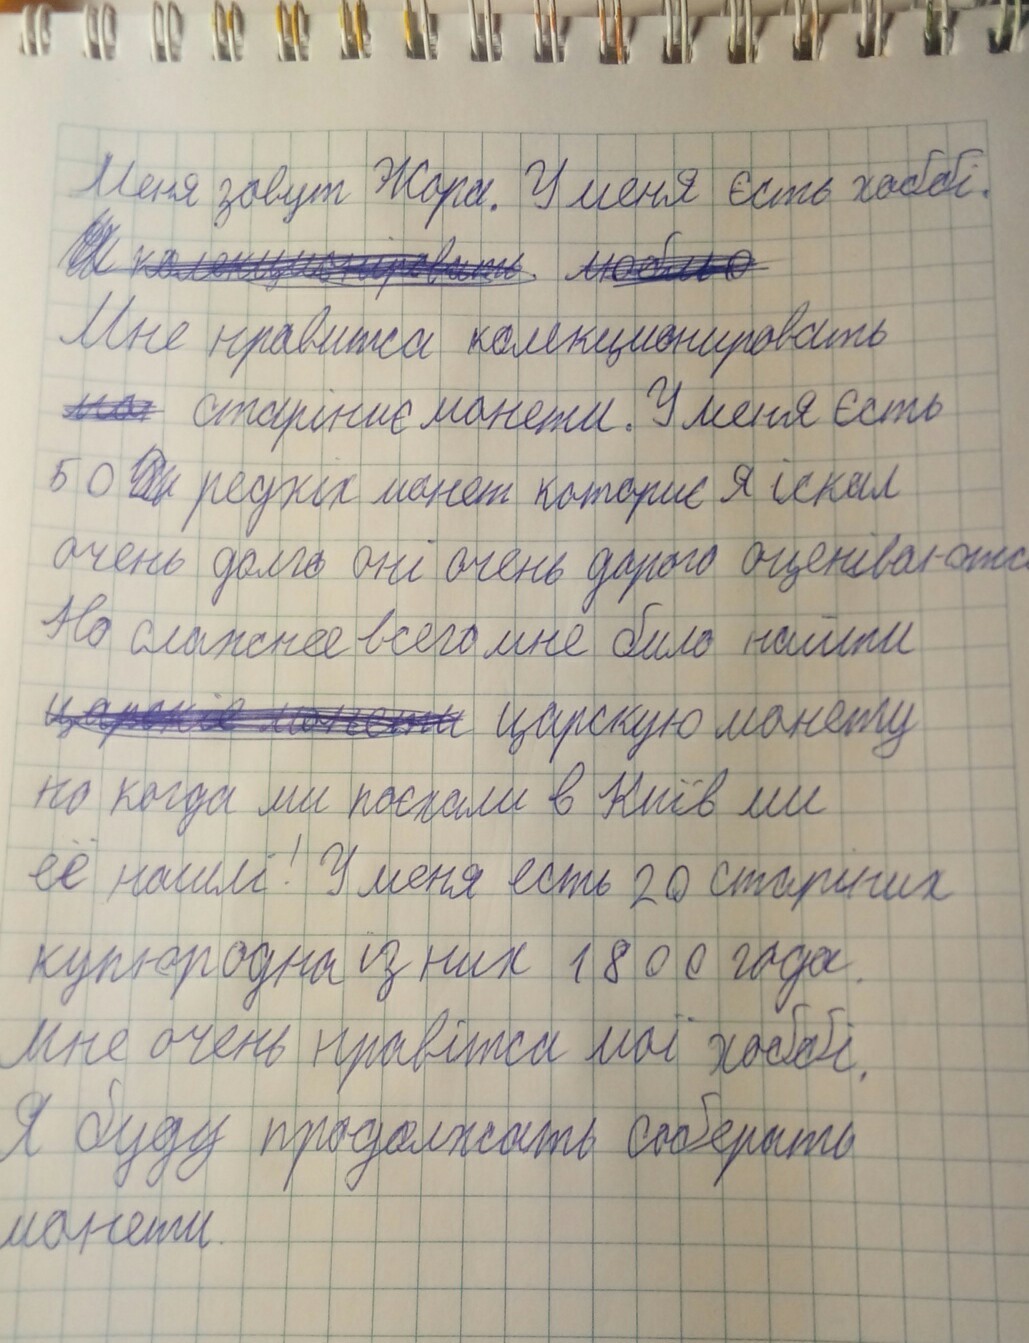 Меня зовут Жора. У меня єсть хоббі.
Я колекціоніровать люблю
Мне нравитса колекционировать
мон старініє монети. У меня єсть
50 редкіх монет которіє я іскал
очень долго оні очень дорого оценіваютс
Но сложнее всего мне било найти
царскіе монети царскую монету
но когда ми поєхали в Київ ми
её нашлі! У меня есть 20 старіних
купюр одна із них 1800 года.
Мне очень нравітса мої хоббі.
Я буду продолжать соберать
монети.